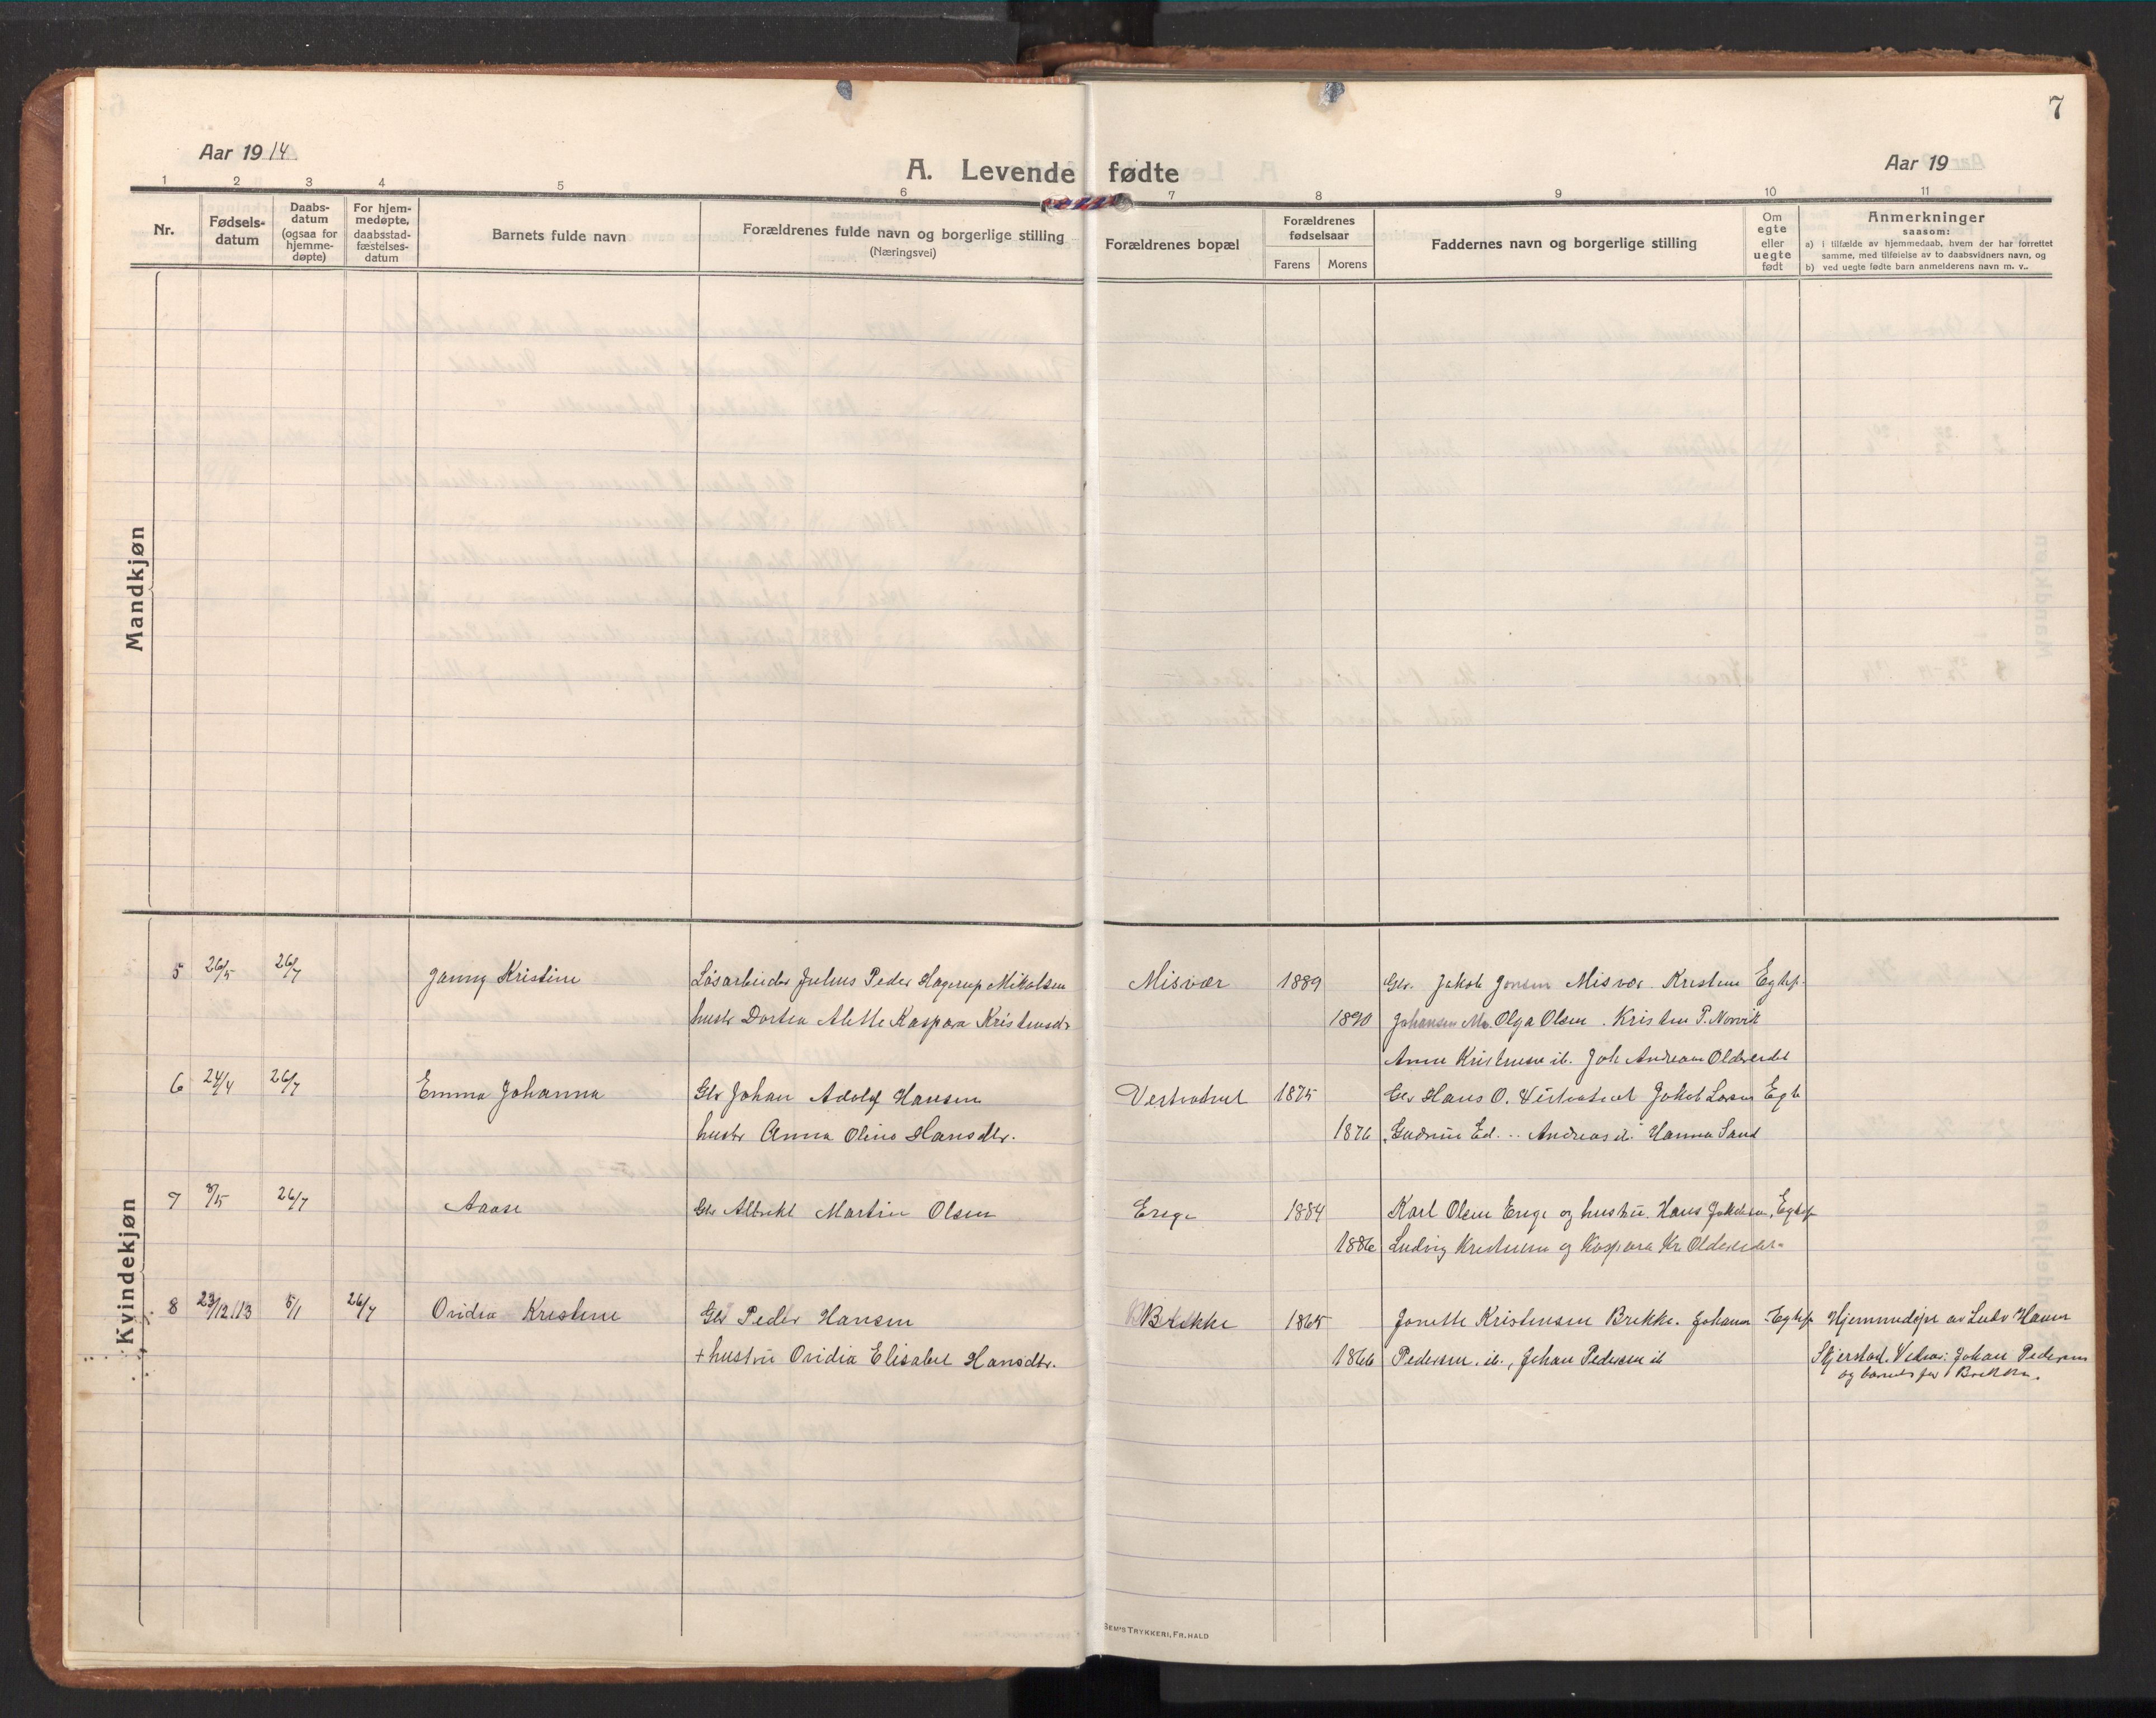 7
Aar 1914
A. Levende fødte
Aar 19
1 2 3 4 5 6 7 8 9 10 11
Nr.
Fødsels-
datum
Daabs-
datum
(ogsaa for
hjemme-
døpte)
For hjem-
medøpte,
daabsstad-
fæstelses-
datum
Barnets fulde navn
Forældrenes fulde navn og borgerlige stilling
(Næringsvei)
Forældrenes bopæl
Forældrenes
fødselsaar
Farens Morens
Faddernes navn og borgerlige stilling
Om
egte
eller
uegte
født
Anmerkninger
saasom:
a) i tilfælde av hjemmedaab, hvem der har forrettet
samme, med tilføielse av to daabsvidners navn, og
b) ved uegte fødte barn anmelderens navn m. v.
Mandkjøn
Kvindekjøn
5 26/5 26/7 Janny Kristine Løsarbeider Julius Peder Hagerup Mikalsen Misvær 1889 Gbr. Jakob Jensen Misvær. Kristine
hustr Dortea Alette Kaspara Kristensdr 1890 Johansen Olga Olsen. Kristen P. Norvik
Anne Kristensen ib. Joh Andreas
6 24/4 26/7 Emma Johanna Gbr Johan Adolf Hansen 1875 Gbr Hans O. Jakob Egte
hustr Anna Oline Hansdtr. 1876 Ed. Andreas Hanna Sand
7 8/5 26/7 Aase Gbr Albrekt Martin Olsen Erege 1884 Karl Olsen Enge og hustru. Hans
1886 Ludvig Kristensen og Kaspara Kr.
8 23/12.13 5/1 26/7 Ovidia Kristine Gbr Peder Hansen Brekke 1865 Jonette Kristensen Brekke. Johanna Hjemmedøpt av
+ hustru Ovidia Elisabet Hansdtr. 1866 Pedersen. ib., Johan Pedersen ib Skjerstad. Johan Pedersen
og barnets far Brekke.
SEM'S TRYKKERI, FR. HALD